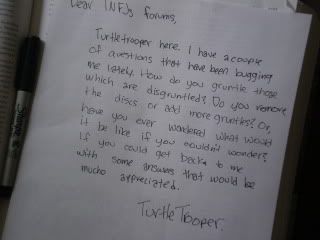 Dear INFJs forums,
Turtletrooper here. I have a couple
of questions that have been bugging
me lately. How do you gruntle those
which are disgruntled? Do you remove
the discs, or add more gruntles? Or,
have you ever wondered what would
it be like if you couldn't wonder?
If you could get back to me
with some answers that would be
mucho appreciated.
TurtleTrooper.